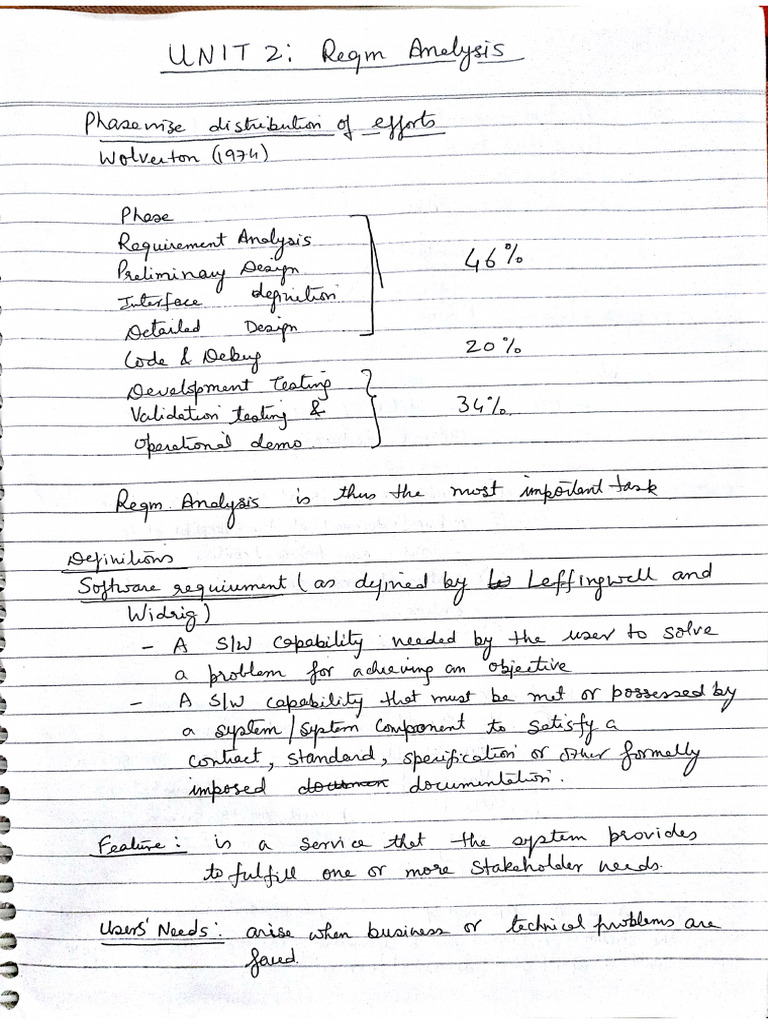 UNIT 2: Reqm Analysis
Phasewise distribution of efforts
Wolverton (1974)
Phase
Requirement Analysis
Preliminary Design
46%
Interface definition
Detailed Design
20%
Code & Debug
Development Testing
Validation testing &
34%
Operational demo.
Reqm. Analysis is thus the most important task
Definitions
Software requirement (as defined by Leffingwell and
Widrig)
- A S/W capability needed by the user to solve
a problem for achieving an objective
- A S/W capability that must be met or possessed by
a system/system component to satisfy a
contract, standard, specification or other formally
imposed documentation.
Feature: is a service that the system provides
to fulfill one or more stakeholder needs.
Users' Needs: arise when business or technical problems are
faced.